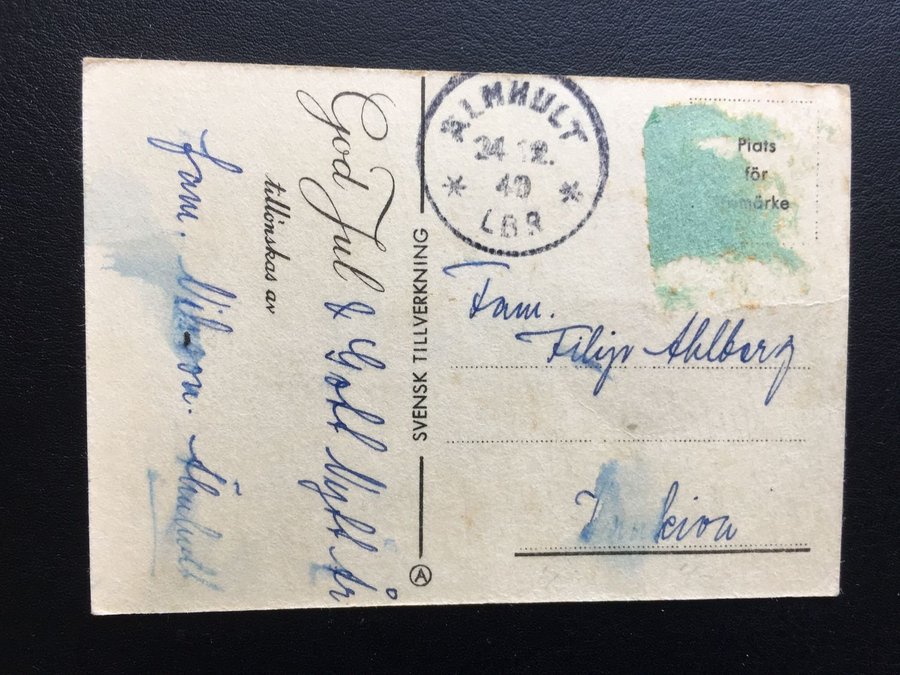 God Jul & Gott Nytt år
tillönskas av
fam. Nilsson. Älmhult
SVENSK TILLVERKNING
A
ÄLMHULT
24.12.
LBR
Plats
för
märke
Fam.
Filip Ahlberg